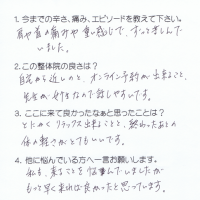 1. 今までの辛さ、痛み、エピソードを教えて下さい。
肩や首の痛みや重い感じで、ずっと苦しんで
いました。
2. この整体院の良さは？
自宅から近いのと、オンライン予約が出来ること、
先生が女性なので話しやすいです。
3. ここに来て良かったなぁと思ったことは？
とにかくリラックス出来ることと、終わったあとの
体の軽さがとてもいいです。
4. 他に悩んでいる方へ一言お願いします。
私も、来ることを悩んでいましたが
もっと早く来れば良かったと思っています。